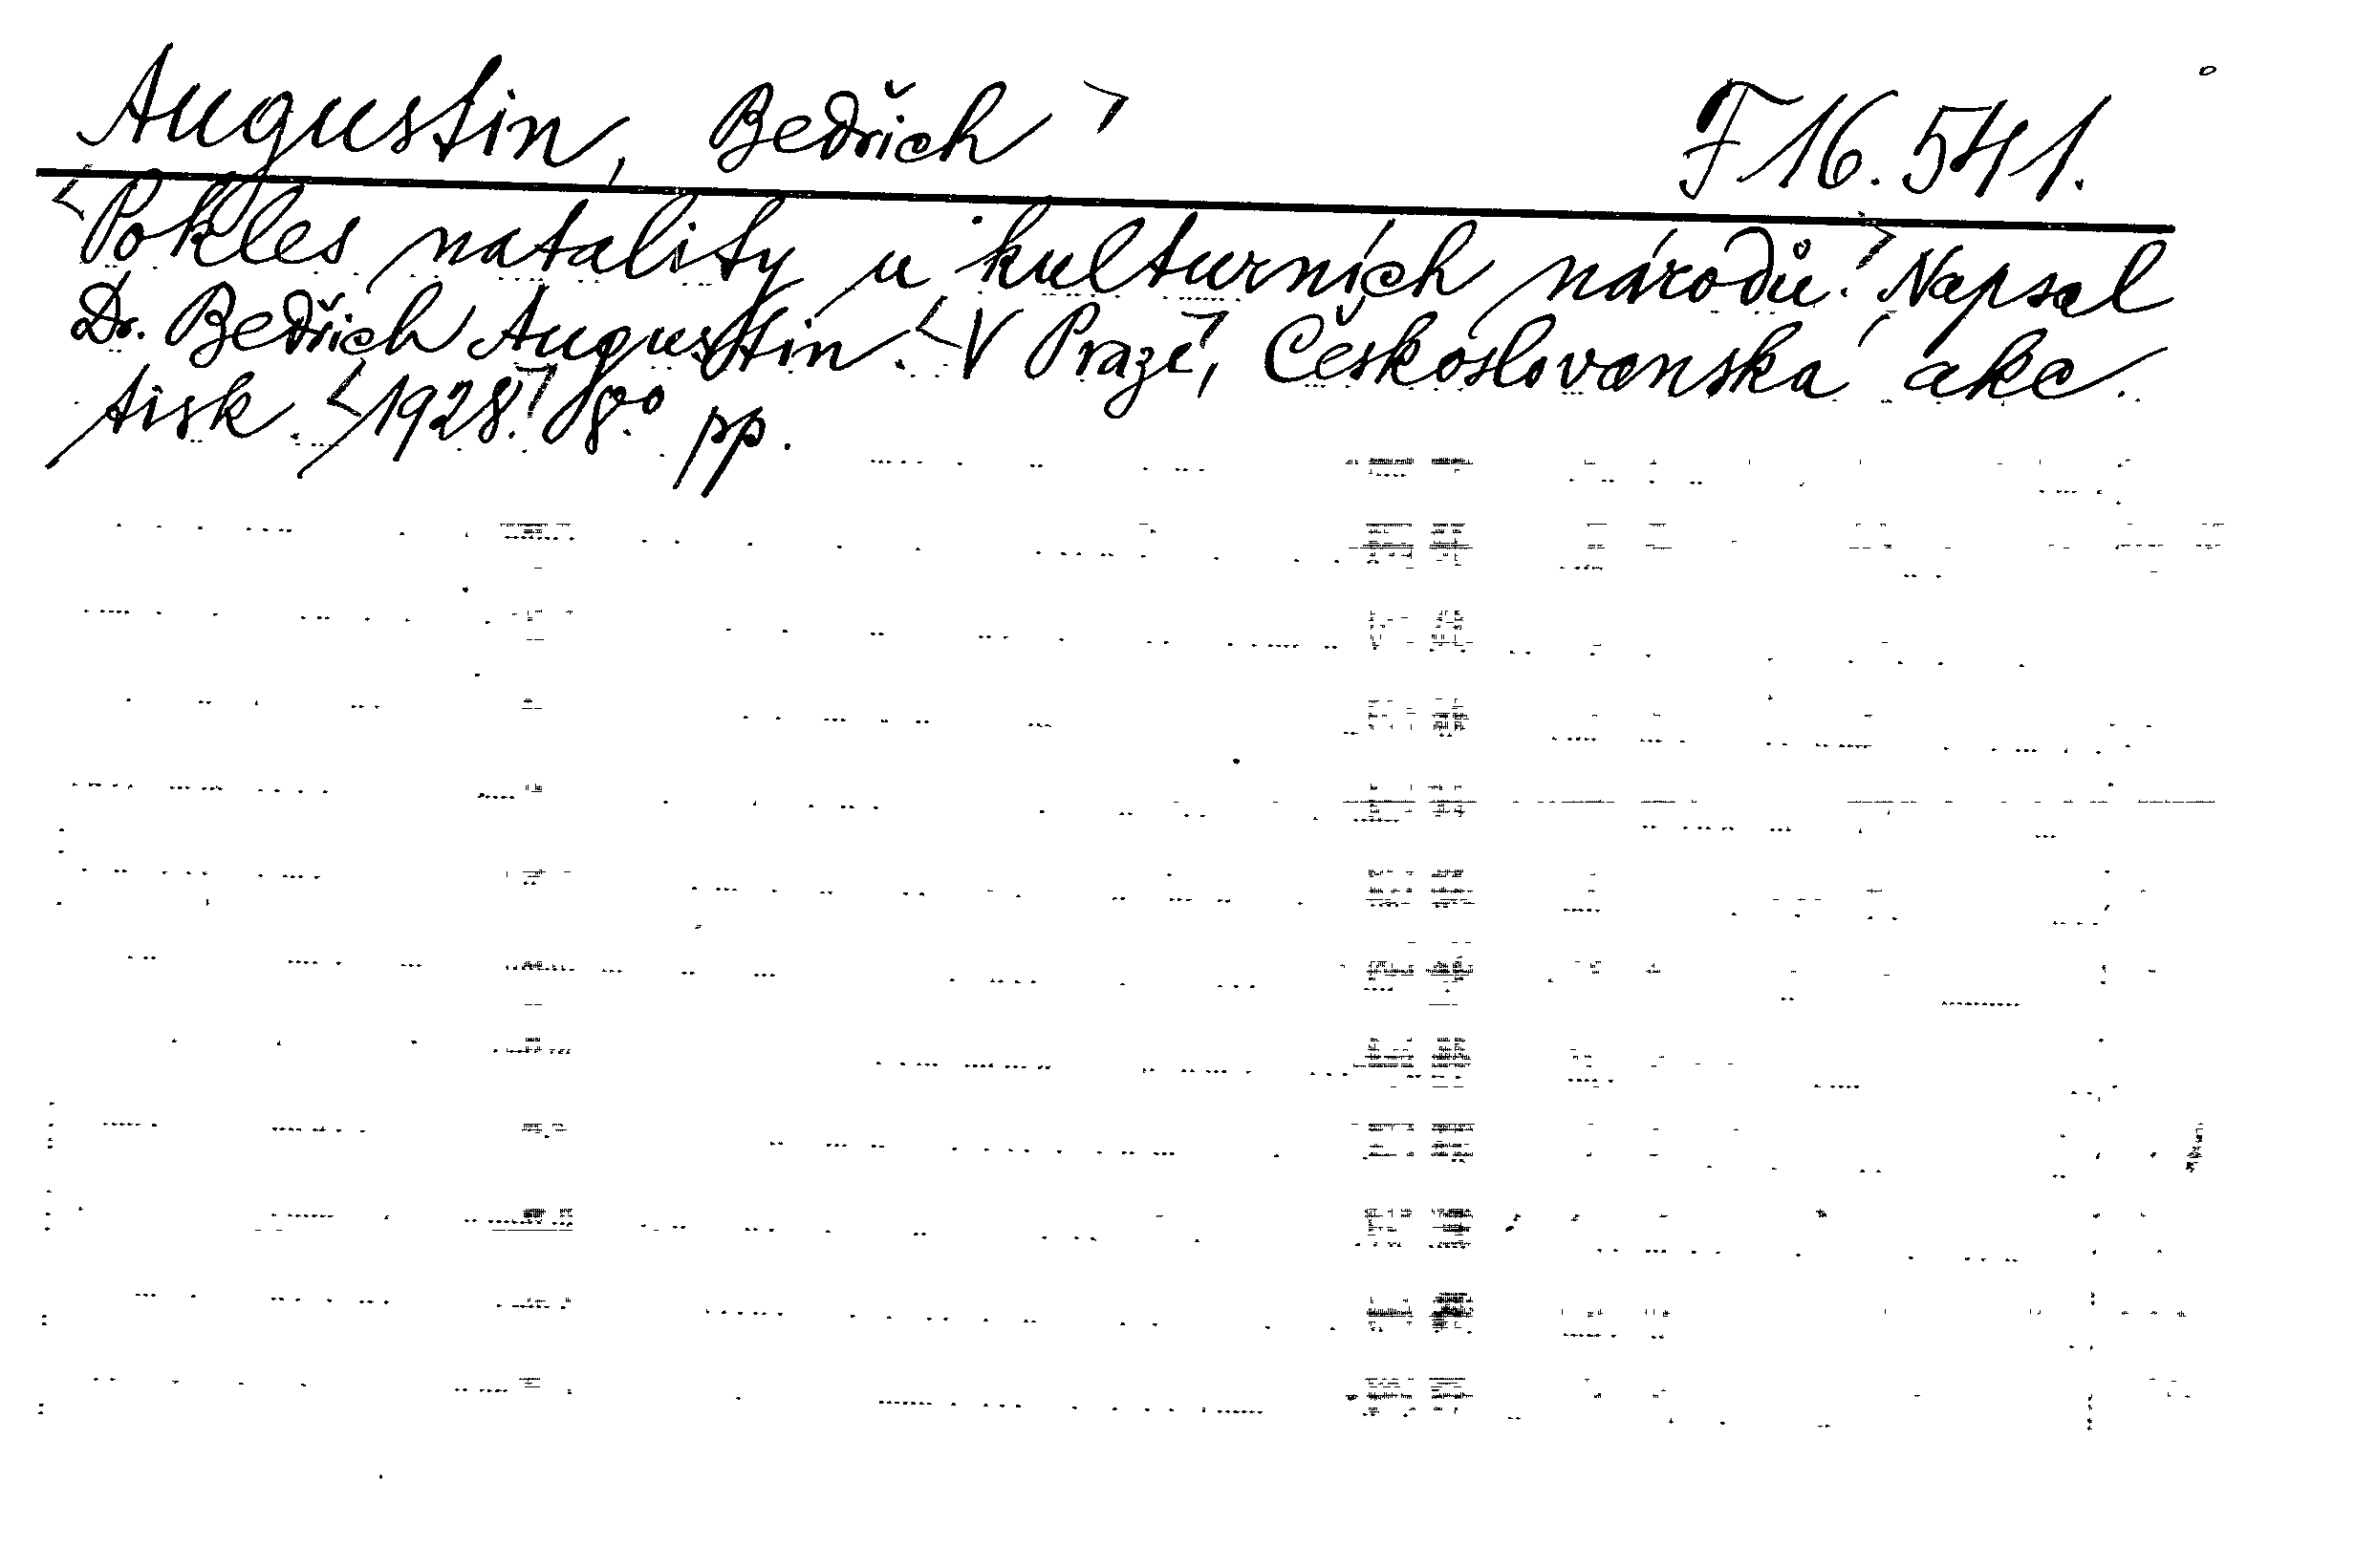 Augustin, Bedřich F 16.541.
Pokles natality u kulturních národů. Napsal
Dr. Bedřich Augustin. V Praze, Československá akc.
tisk. 1928. 8.° pp.